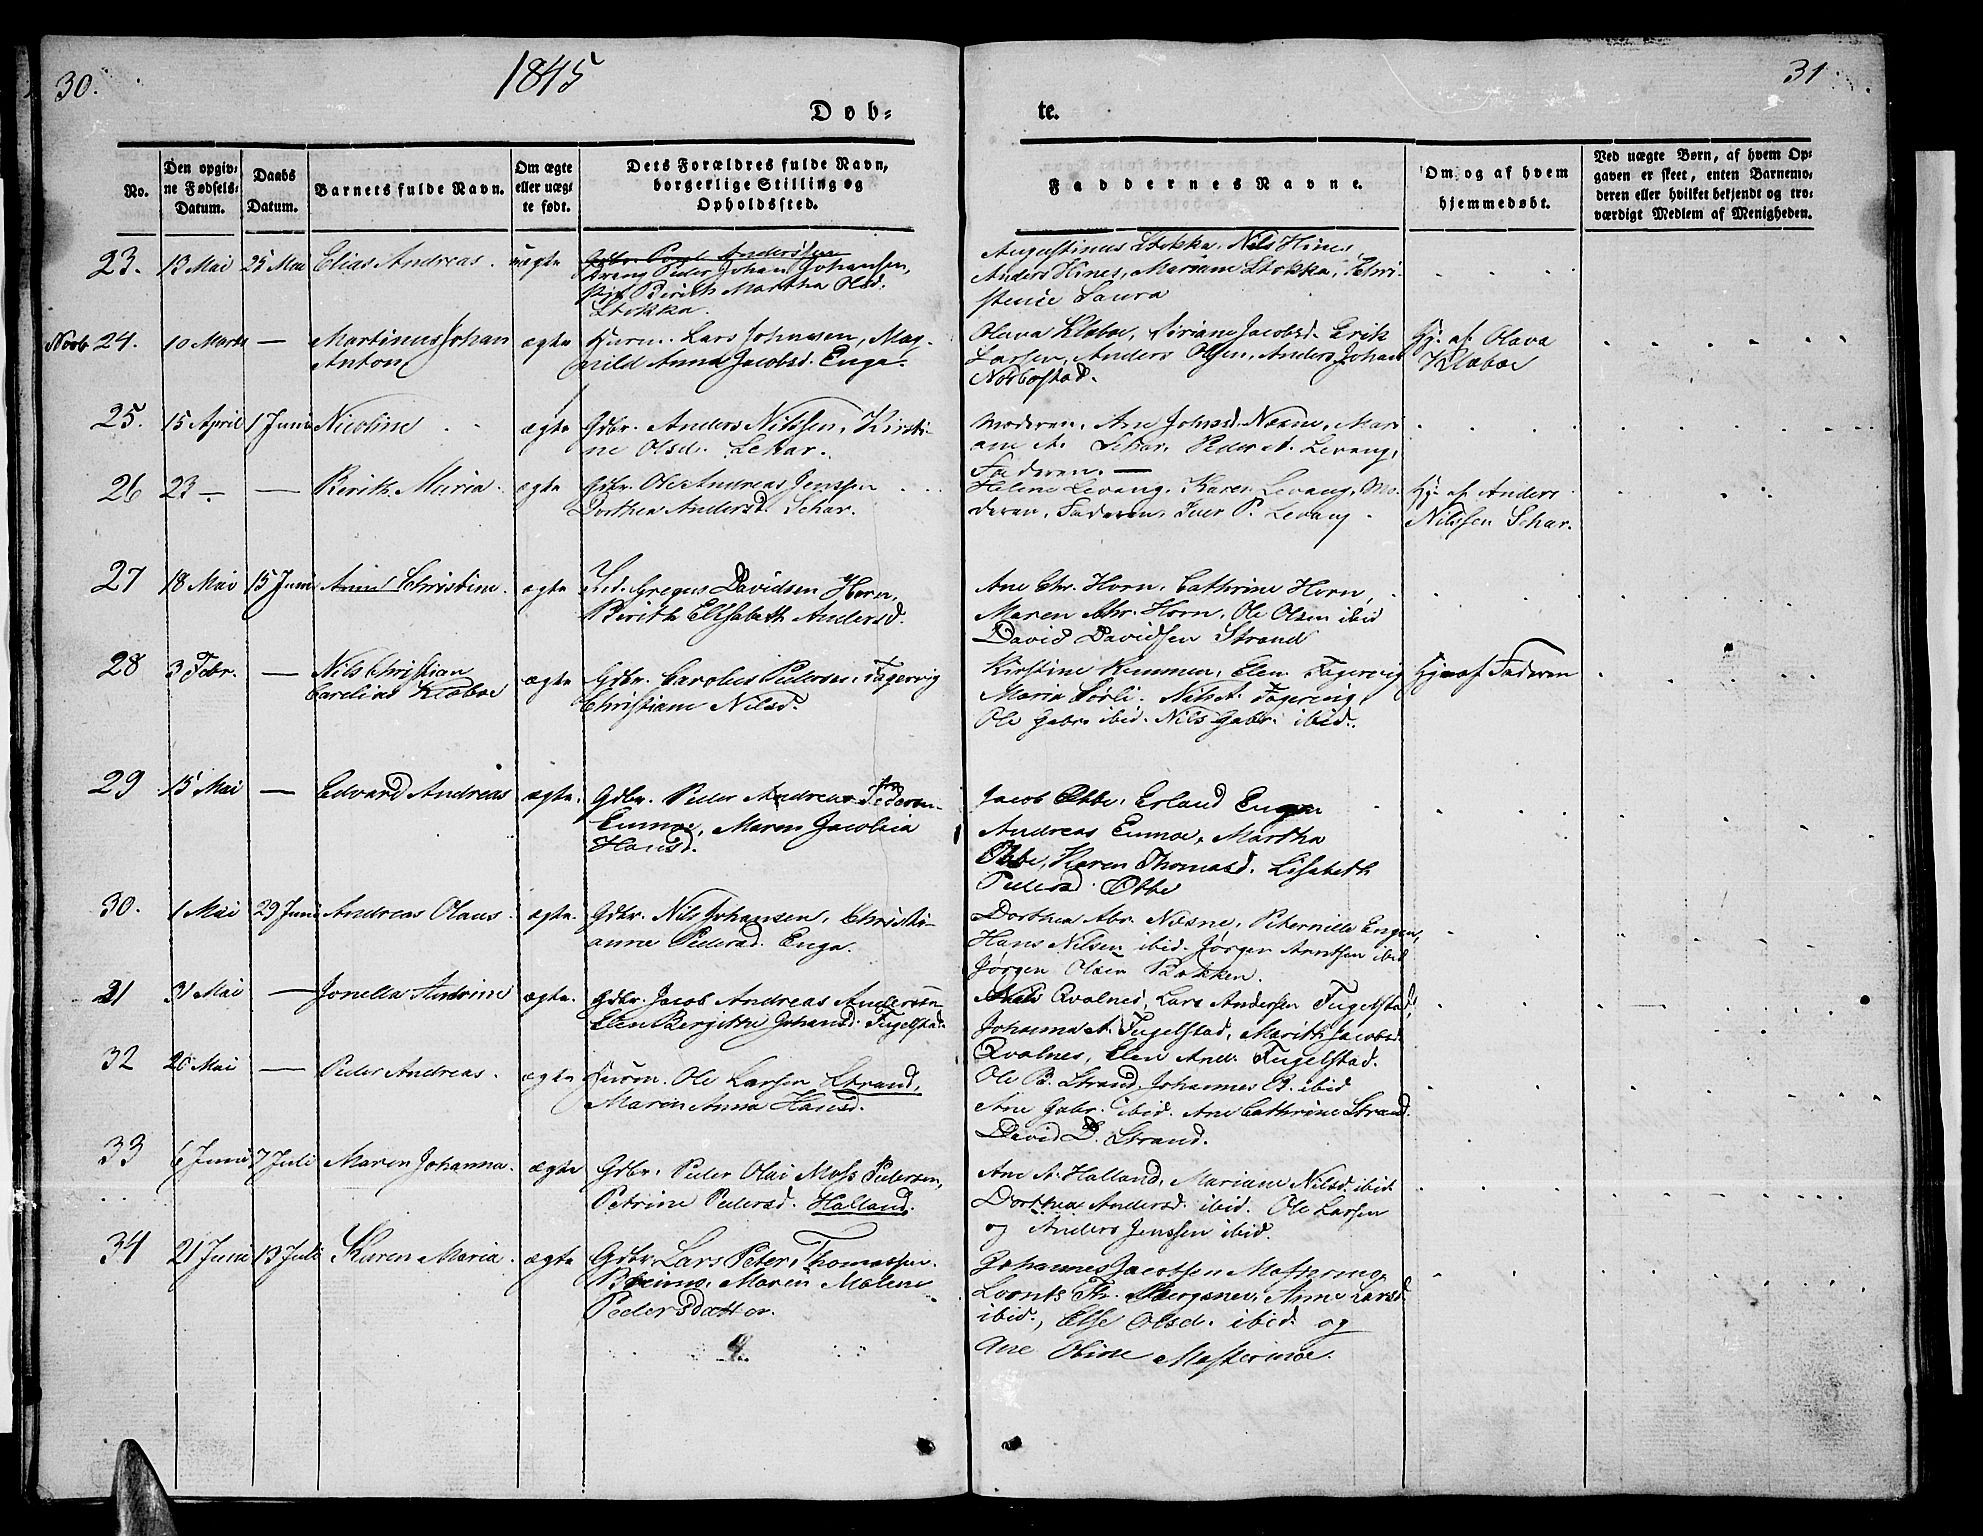 30.
1845
Døb-
te.
31
No.
Den opgiv-
ne Fødsels-
Datum.
Daabs
Datum.
Barnets fulde Navn.
Om ægte
eller uæg-
te født.
Dets Forældres fulde Navn,
borgerlige Stilling og
Opholdssted.
Faddernes Navne.
Om og af hvem
hjemmedøbt.
Ved uægte Børn, af hvem Op-
gaven er skeet, enten Barnemo-
deren eller hvilket bekjendt og tro-
værdigt Medlem af Menigheden.
23. 13 Mai 25 Mai Elias Andreas. uægte
Dreng Peder Johan Johansen,
Pige Berith Martha Olsd.
Stokka.
Augustinus Stokka, Nils Hines,
Anders Hines, Mariane Stokka, Chri-
stense Laura
24. 10 Marts — Martinus Johan
Anton
ægte
Huusm. Lars Johnsen, Mag-
nild Anna Jacobsd. Enga.
Olava Klæboe, Siriane Jacobsd. Erik
Larsen, Anders Olsen, Anders Johan
Norbostad.
Hj. af Olava
Klæboe
25. 15 April 1 Juni Nicoline ægte
Gdbr. Anders Nilssen, Kirsti-
ne Olsd. Sckar.
Moderen, Ane Johnsd. Næsne, Mari-
ane A. Sckar, Peder A. Levang,
Faderen. —
26 23 — — Berith Maria. ægte
Gdbr. Ole Andreas Jenssen
Dorthea Andersd. Sckar.
Helene Levang, Karen Levang, Mo-
deren, Faderen, Iver P. Levang.
Hj. af Anders
Nilssen Sckar.
27 18 Mai 15 Juni Anne Christine. ægte
Ind. Gregus Davidsen Horn,
Berith Elisabeth Andersd.
Ane Chr. Horn, Cathrine Horn,
Maren Chr. Horn, Ole Olsen ibid
David Davidssen Strand
28 3 Febr. — Nils Christian
Carelius Klæboe
ægte
Gdbr. Carolus Pedersen Fagervig
Christiane Nilsd.
Kirstine Remmen, Elen Fagervig
Maria Sörli, Nils A. Fagervig,
Ole Gabr. ibid. Nils Gabr. ibid.
Hj. af Faderen
29 15 Mai — Edvard Andreas ægte.
Gdbr. Peder Andreas Pedersen
Enmoe, Maren Jacobia
Hansd.
Jacob Obbe, Erland Engen
Andreas Enmoe, Martha
Obbe, Karen Thomasd. Lisabeth
Pedersd. Obbe
30. 1 Mai 29 Juni Andreas Olaus. ægte.
Gdbr. Nils Johansen, Christi-
anne Pedersd. Enga.
Dorthea Abr. Næsne, Peternille Engen,
Hans Nilsen ibid. Jørgen Arntsen ibid
Jørgen Olsen Bakken.
31 31 Mai — Jonella Andrine ægte.
Gdbr. Jacob Andreas Andersen
Elen Bergitte Johansd. Fugelstad.
Niels Qvalnes, Lars Andersen Fugelstad,
Johanna A. Fugelstad, Marith Jacobsd.
Qvalnes, Elen And. Fugelstad.
32 26 Mai — Peder Andreas. ægte
Huusm. Ole Larsen Strand,
Maren Anna Hansd.
Ole B. Strand, Johannes B. ibid
Ane Gabr. ibid. Ane Cathrine Strand.
David D. Strand.
33 6 Juni 7 Juli Maren Johanna. ægte
Gdbr. Peder Olai Moss Pedersen,
Petrine Pedersd. Halland.
Ane A. Halland, Mariane Nilsd. ibid
Dorthea Andersd. ibid. Ole Larsen
og Anders Jenssen ibid.
34 21 Juni 13 Juli Karen Maria. ægte
Gdbr. Lars Peter Thomassen
Maren Malene
Pedersdatter.
Johannes Jacobsen
Anne Larsd.
ibid., Else Olsd. ibid. og
Ane Oline